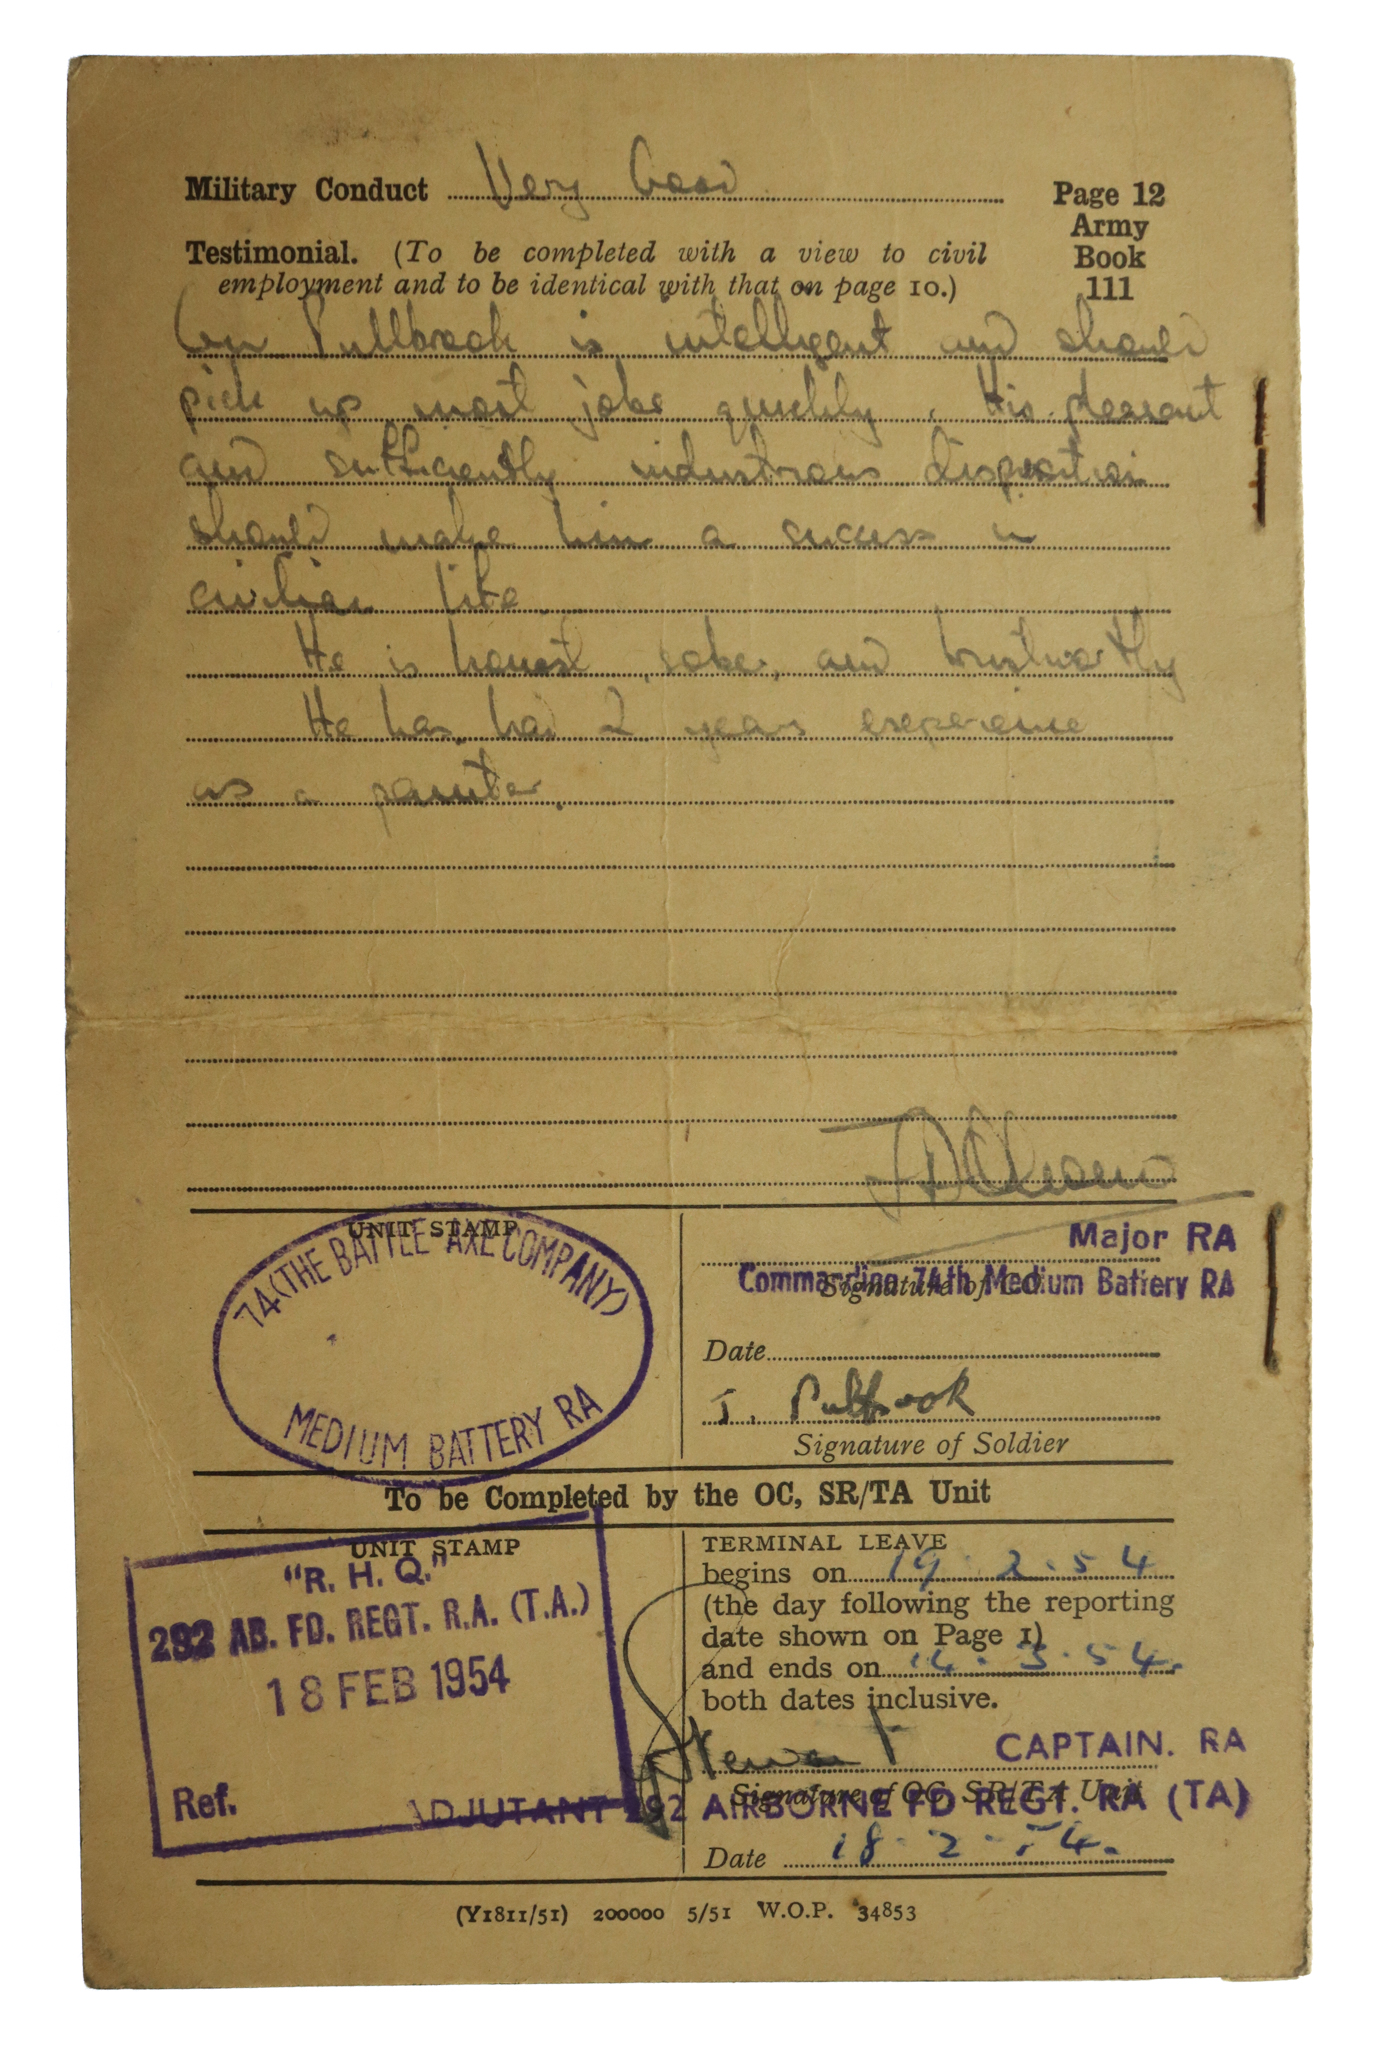 Military Conduct Very Good
Page 12
Army
Book
111
Testimonial. (To be completed with a view to civil
employment and to be identical with that on page 10.)
Gnr Pullbrook is intelligent and should
pick up most jobs quickly. His pleasant
and sufficiently industrious disposition
should make him a success in
civilian life
He is honest, sober, and trustworthy
He has had 2 years experience
as a painter.
UNIT STAMP
74 (THE BATTLE AXE COMPANY)
MEDIUM BATTERY RA
Major RA
Commanding 74th Medium Battery RA
Signature of
Date
J. Pullbrook
Signature of Soldier
To be Completed by the OC, SR/TA Unit
UNIT STAMP
"R. H. Q."
292 AB. FD. REGT. R.A. (T.A.)
18 FEB 1954
Ref.
TERMINAL LEAVE
begins on 19.2.54
(the day following the reporting
date shown on Page 1)
and ends on 14.3.54.
both dates inclusive.
Stewart
CAPTAIN. RA
Signature of OC, SR/TA Unit
ADJUTANT 292 AIRBORNE FD REGT. RA (TA)
Date 18.2.54.
(Y1811/51) 200000 5/51 W.O.P. 34853